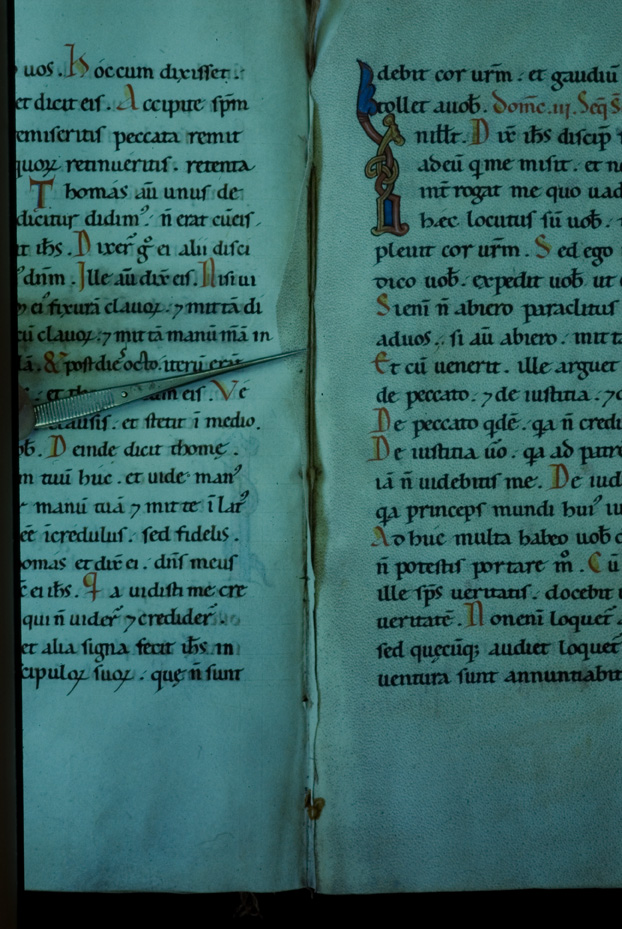 uos. Hoc cum dixisset.
et dicit eis. Accipite spm̄
remiseritis peccata remit
quoꝝ retinueritis. retenta
Thomas aū unus de
dicitur didim᷒. n̄ erat cū eis.
it ih̄s. Dixer̄ g̊ ei alii disci
dn̄m. Ille aū dix̄ eis. Nisi ui
ei᷒ fixurā clauoꝝ. ⁊ mittā di
cū clauoꝝ. ⁊ mittā manū m̄ā in
& post dies octo. iterū erant
eis. Ve
clausis. et stetit ī medio.
ob̄. Deinde dicit thome.
m tuū huc. et uide man᷒
manū tuā ⁊ mitte ī lat᷒
ēē īcredulus. sed fidelis.
omas et dix̄ ei. dn̄s meus
ei ih̄s. Qa uidisti me cre
qui n̄ uider̄ ⁊ credider̄.
et alia signa fecit ih̄s in
cipuloꝝ suoꝝ. que n̄ sunt
debit cor ur̄m. et gaudiū
tollet a uob̄. Domīc. iii. Seq̄ S
In illt. Dix̄ ih̄s discip
ad eū q me misit. et n
int̄rogat me quo uad
hæc locutus sū uob̄.
pleuit cor ur̄m. Sed ego
dico uob̄. expedit uob̄ ut
Si enī n̄ abiero paraclitus
ad uos. si aū abiero. mitt
Et cū uenerit. ille arguet
de peccato. ⁊ de iustitia. ⁊
De peccato qdē. qa n̄ credu
De iustitia ūo. qa ad patre
iā n̄ uidebitis me. De iud
qa princeps mundi hui᷒ iu
Adhuc multa habeo uob̄
n̄ potestis portare m̊. Cū
ille sp̄s ueritatis. docebit
ueritatē. Non enī loquet
sed quecūq; audiet loquet
uentura sunt annuntiabit